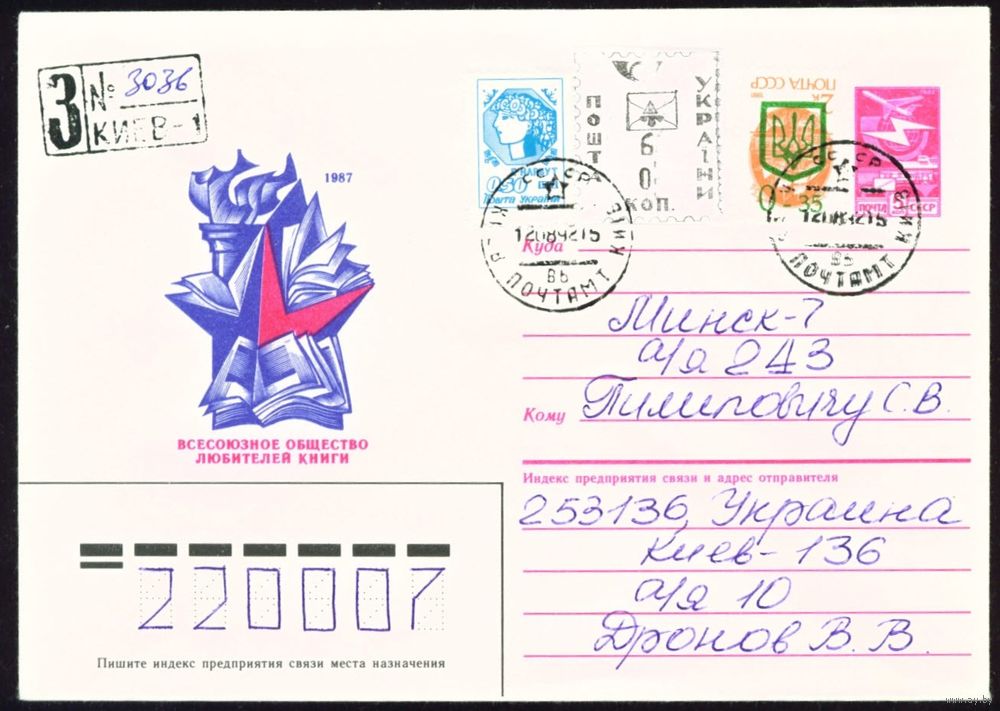 З № 3036
КИЕВ-1
1987
ВСЕСОЮЗНОЕ ОБЩЕСТВО
ЛЮБИТЕЛЕЙ КНИГИ
0.50
Пошта України
ПОШТА
УКРАЇНИ
6
0
КОП.
ПОЧТА СССР
2к
0-35
ПОЧТА
5
СССР
СССР
КИЕВ
12089215
ПОЧТАМТ
СССР
КИЕВ
12089215
ПОЧТАМТ
Куда
Минск-7
а/я 243
Кому Пилиповичу С.В.
Индекс предприятия связи и адрес отправителя
253136, Украина
Киев-136
а/я 10
Дронов В.В.
220007
Пишите индекс предприятия связи места назначения
www.ay.by